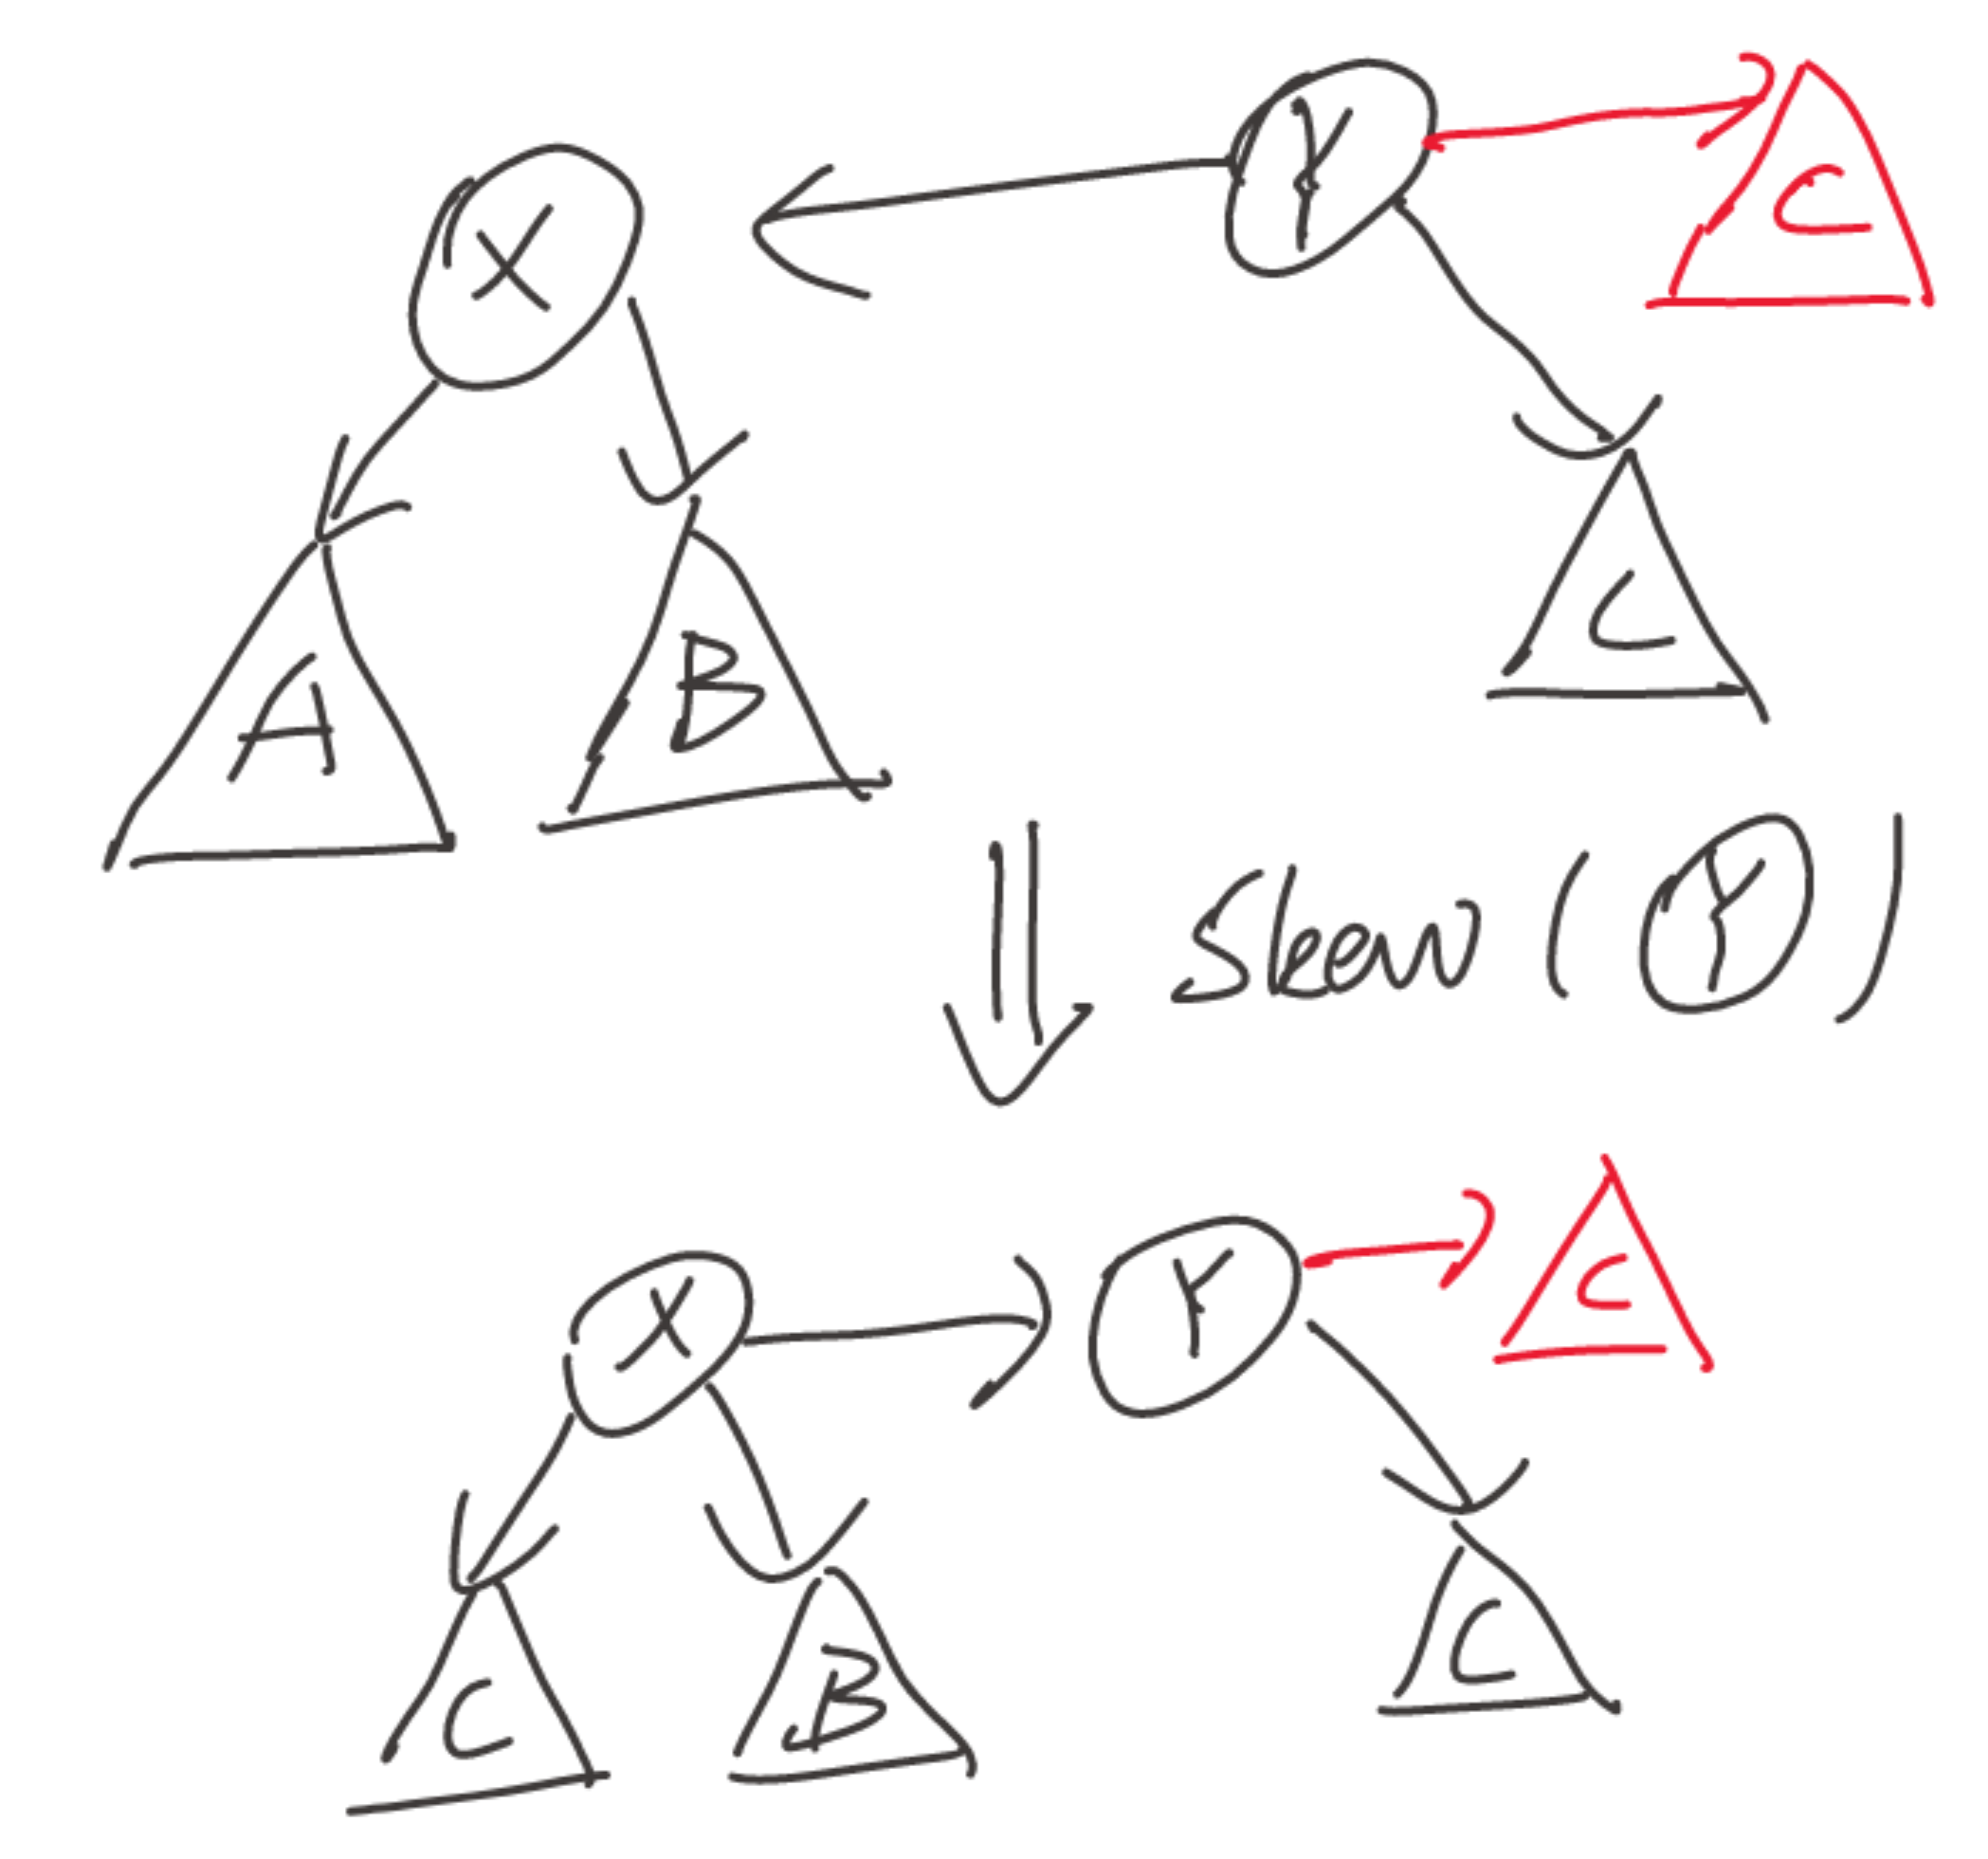 X Y C
A B C
Skew (Y)
X Y C
C B C